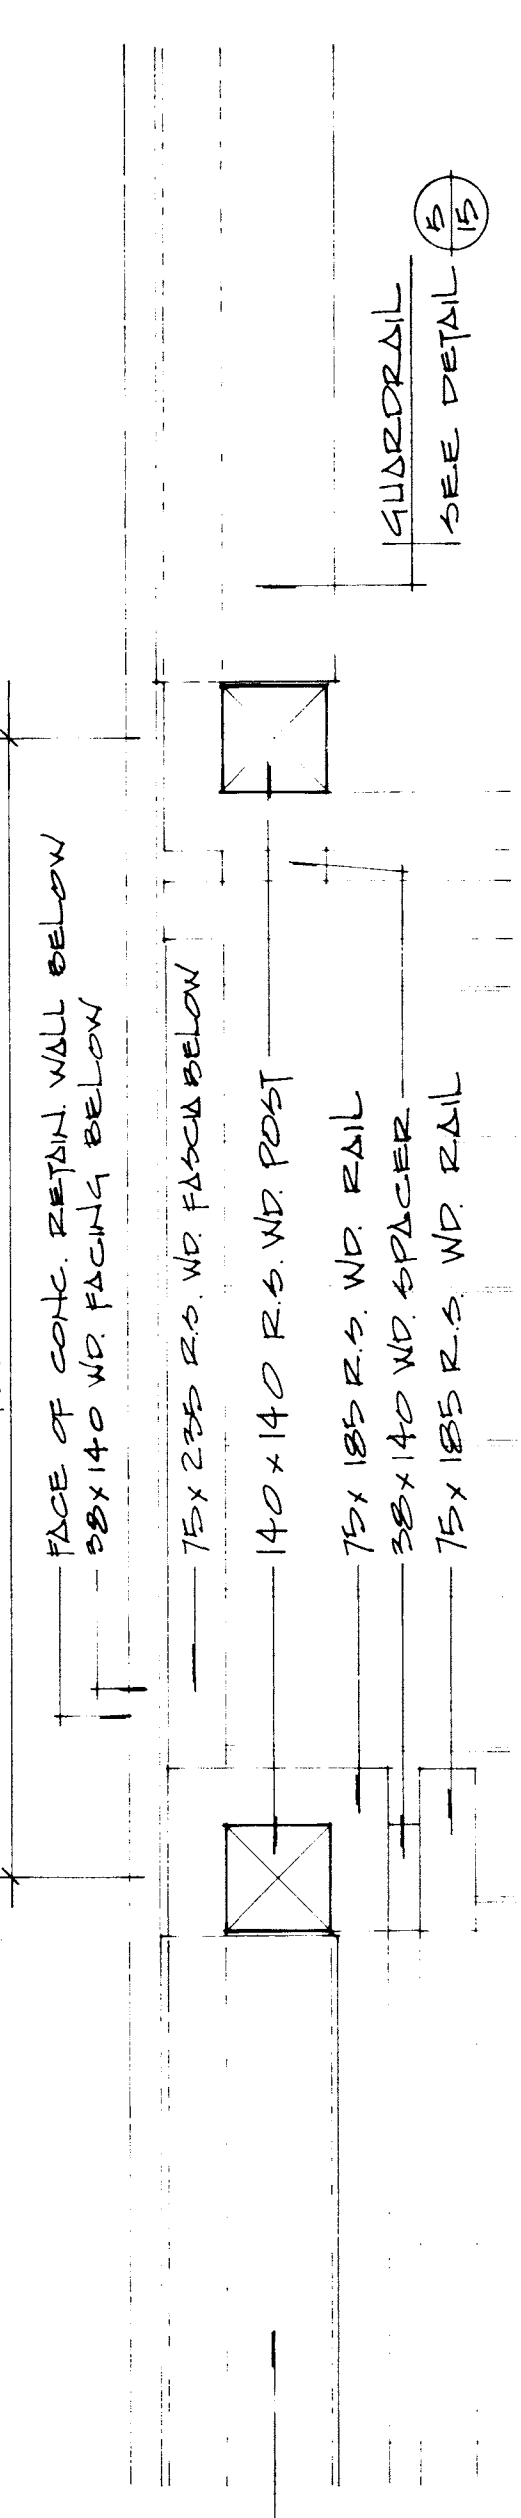 FACE OF CONC. RETAIN. WALL BELOW
38x140 WD. FACING BELOW
75x235 R.S. WD. FASCIA BELOW
140x140 R.S. WD. POST
75x185 R.S. WD. RAIL
38x140 WD. SPACER
75x185 R.S. WD. RAIL
GUARDRAIL
SEE DETAIL
5
15